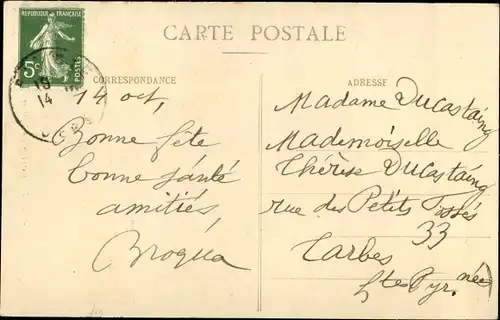 CARTE POSTALE
REPUBLIQUE FRANÇAISE
5c POSTES
18
14
CORRESPONDANCE
14 oct,
Bonne fête
bonne santé
amitiés,
Broqua
ADRESSE
Madame Ducastaing
Mademoiselle
Thérèse Ducastaing
rue des Petits Fossés
33
Tarbes
Htes Pyr.nées